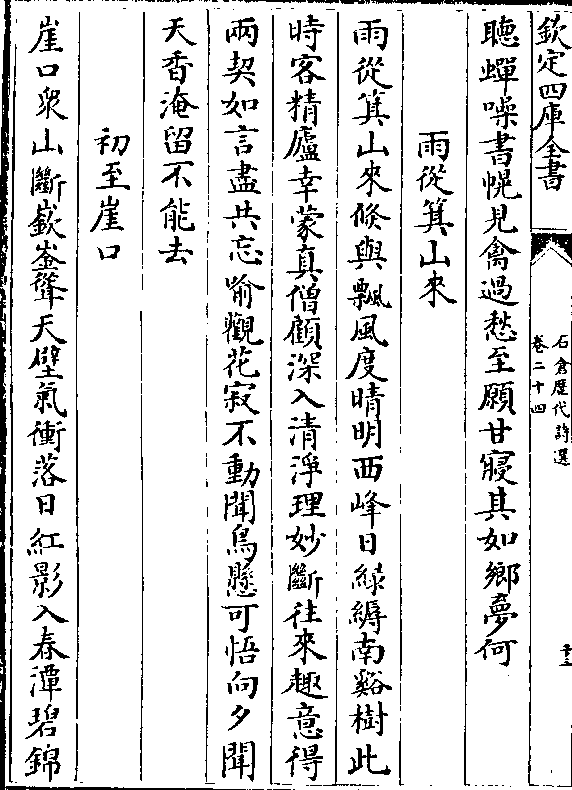 欽定四庫全書
石倉歷代詩選
卷二十四
十三
聽蟬噪書幌見禽過愁至願甘寢其如鄉夢何
雨從箕山來
雨從箕山來倐與飄風度晴明西峰日緑縟南谿樹此
時客精廬幸蒙真僧顧深入清淨理妙斷往來趣意得
兩契如言盡共忘喻觀花寂不動聞鳥懸可悟向夕聞
天香淹留不能去
初至崖口
崖口衆山斷嶔崟聳天壁氣衝落日紅影入春潭碧錦